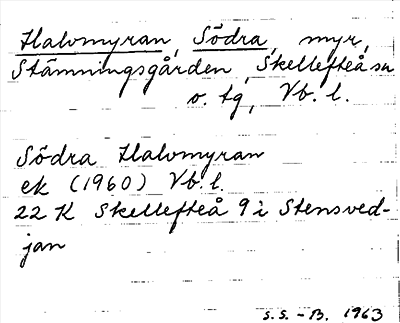 Halvmyran, Södra, myr,
Stämningsgården, Skellefteå sn
o. tg, Vb. l.
Södra Halvmyran
ek (1960) Vb. l.
22 K Skellefteå 9 i Stensved-
jan
S.S. - B. 1963